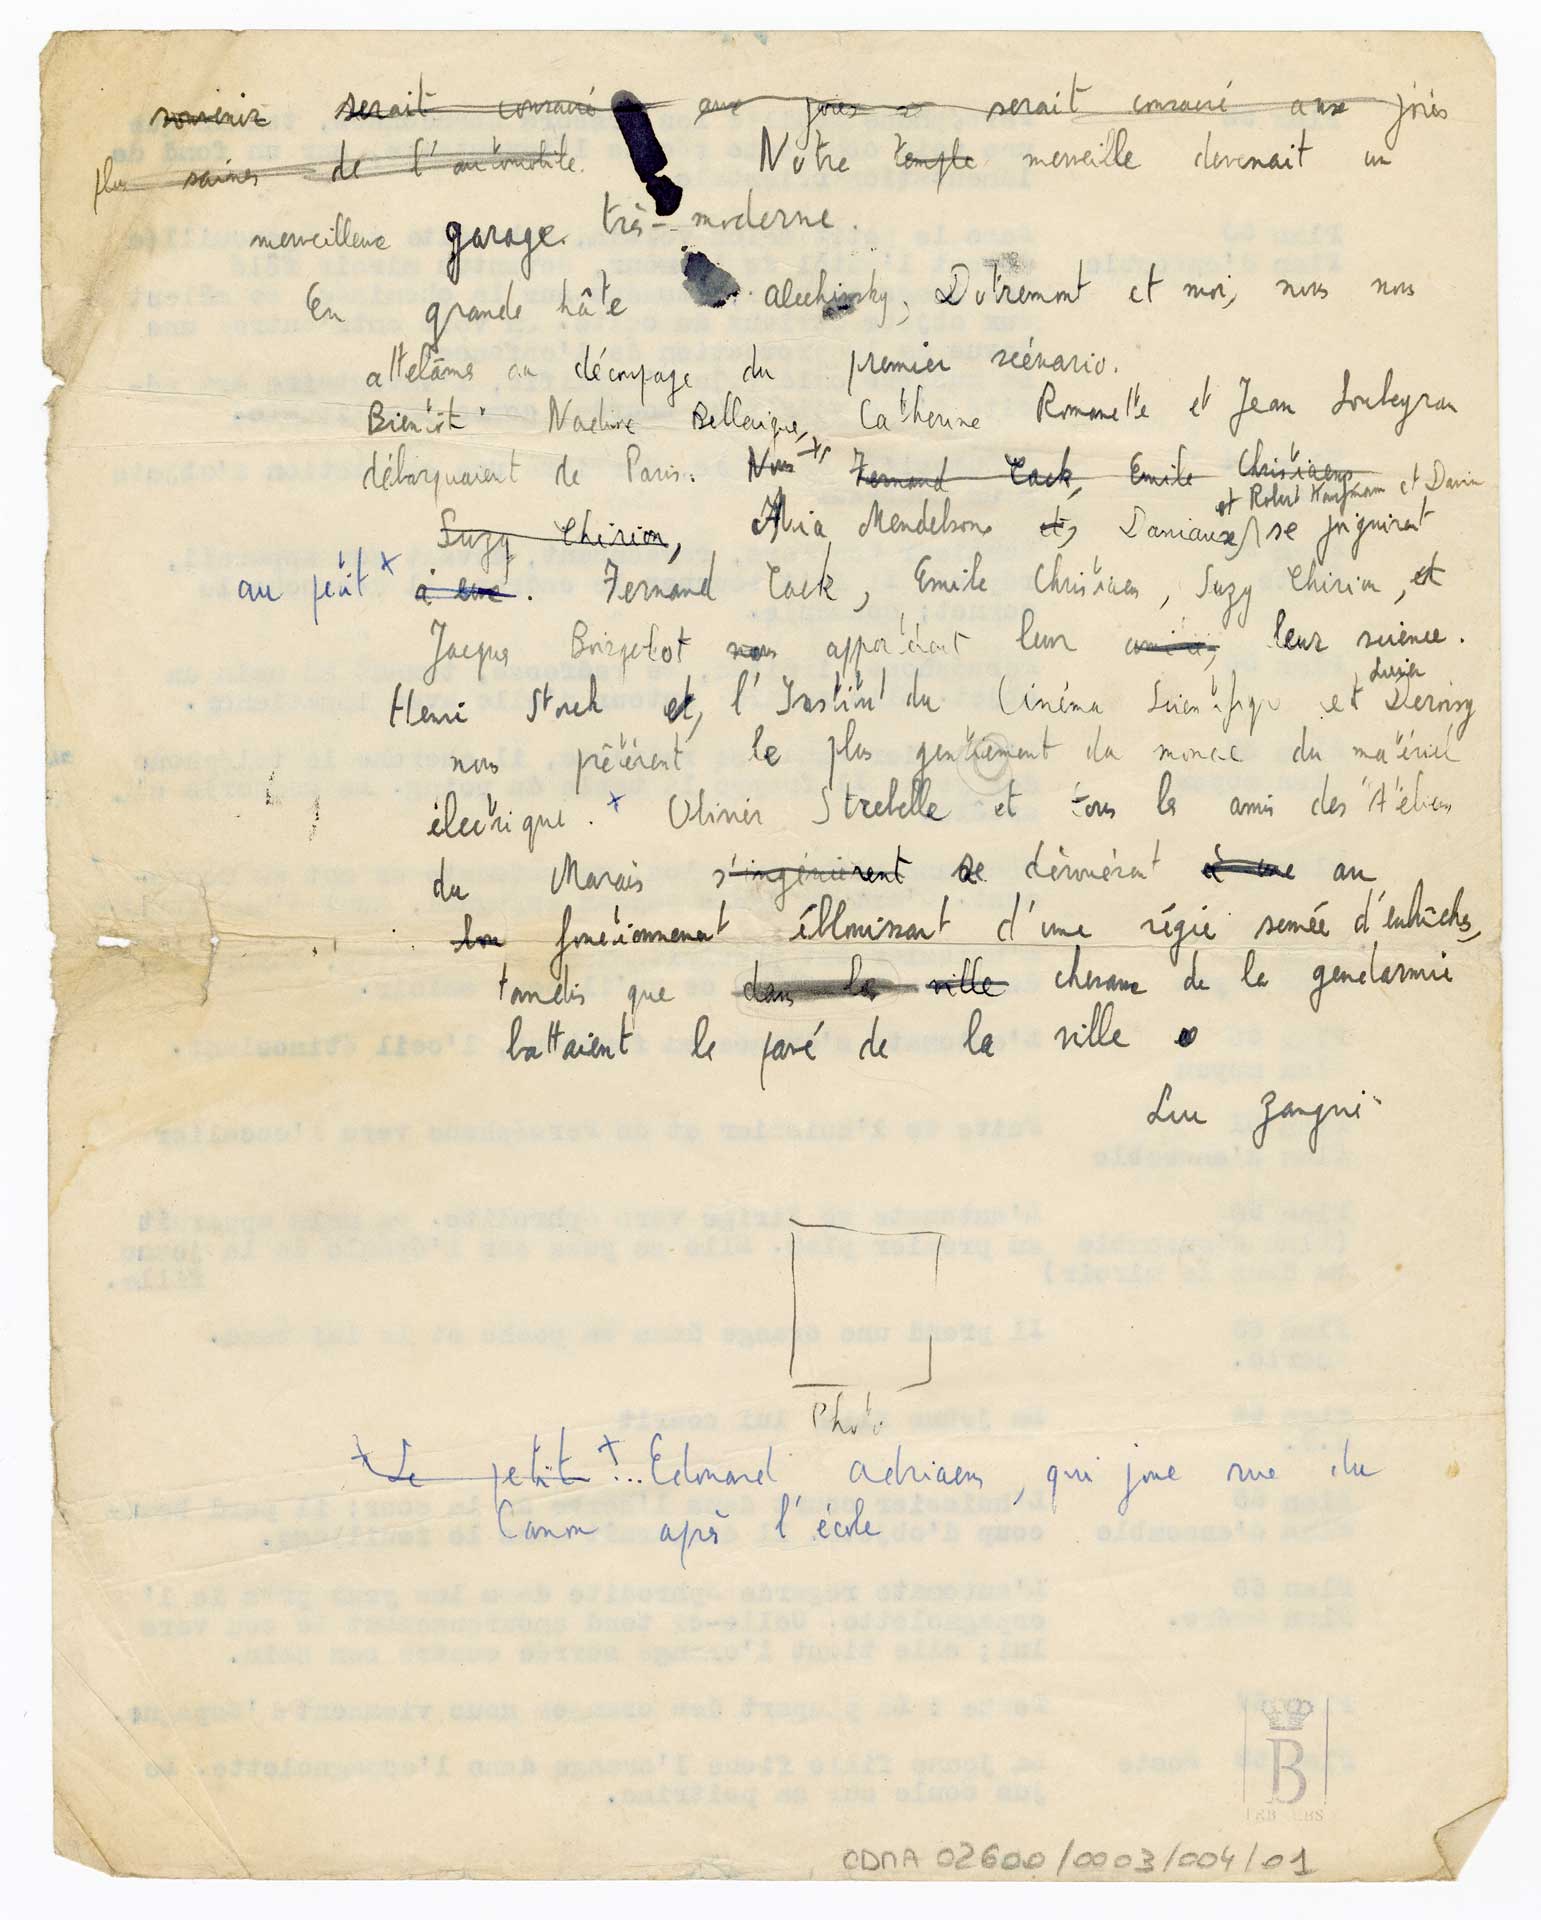 souvenir serait consacré aux joies serait consacré aux joies
plus saines de l'automobile. Notre temple merveille devenait un
merveilleux garage très-moderne.
En grande hâte Alechinsky, Dotremont et moi, nous nous
attelâmes au découpage du premier scénario.
Bientôt Nadine Bellaigue, Catherine Romanette et Jean Soubeyran
débarquaient de Paris. Nous Fernand Tack, Emile Christiaens
et Robert Kaufmann et Davin
Suzy Chirion, Mia Mendelson et, Daniaux se joignirent
au petit x à eux. Fernand Tack, Emile Christiaens, Suzy Chirion, et
Jacques Boigelot nous apportèrent leur amitié, leur science.
Lucien
Henri Storck et, l'Institut du Cinéma Scientifique et Deroisy
nous prêtèrent le plus gentiement du monde du matériel
électrique. x Olivier Strebelle et tous les amis des Ateliers
du Marais s'ingénièrent se dévouèrent à une au
bon fonctionnement éblouissant d'une régie semée d'embûches,
tandis que dans la ville chevaux de la gendarmie
battaient le pavé de la ville
Luc Zangrie
Photo
x Le petit x ... Edouard Adriaens, qui joue rue du
Canon après l'école
B
KBR
CDMA 02600/0003/004/01